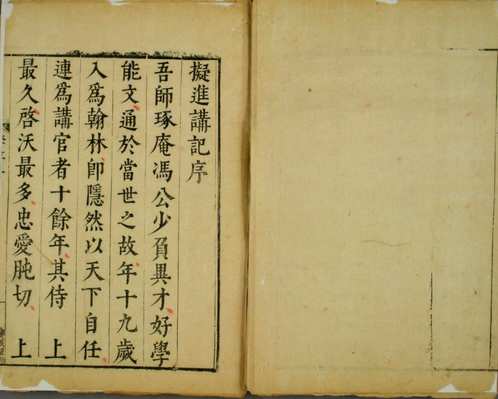 擬進講記序
吾師琢庵馮公少負異才好學
能文通於當世之故年十九歲
入爲翰林卽隱然以天下自任
連爲講官者十餘年其侍 上
最久啓沃最多忠愛肫切 上